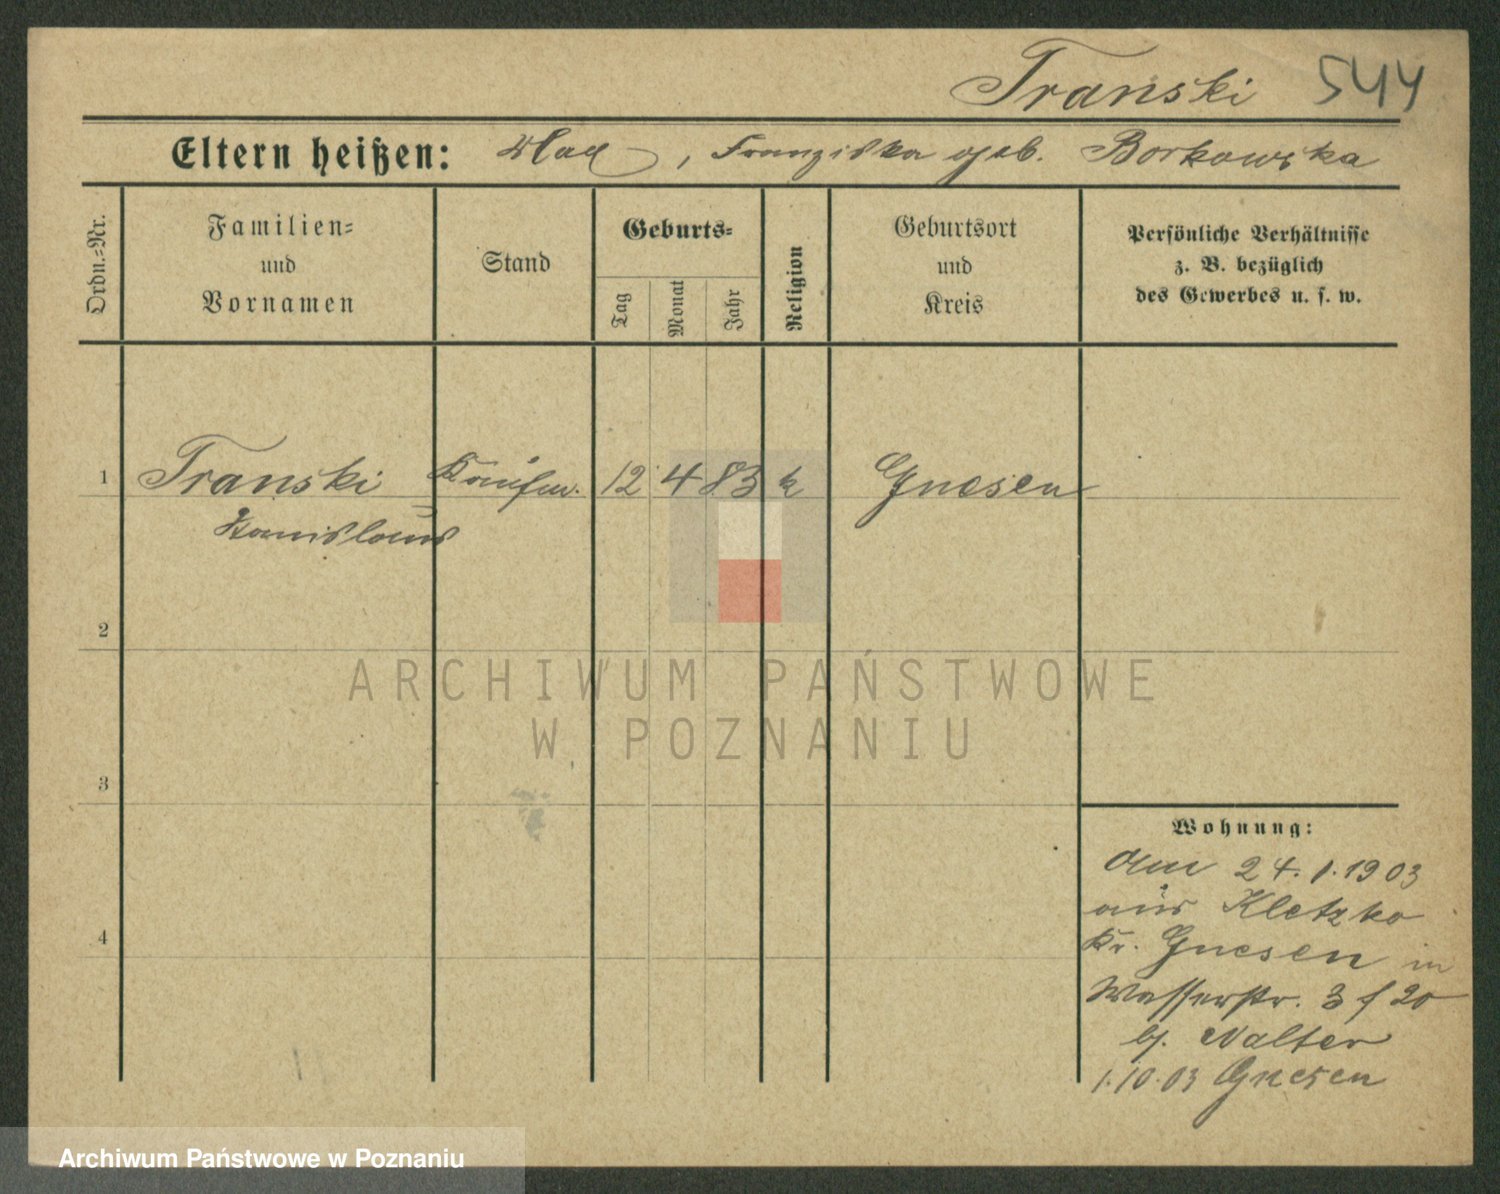 Transki 544
Eltern heißen: Wlad, Franziska geb. Borkowska
Ordn.-Nr.
Familien=
und
Vornamen
Stand
Geburts=
Tag
Monat
Jahr
Religion
Geburtsort
und
Kreis
Persönliche Verhältnisse
z. B. bezüglich
des Gewerbes u. s. w.
1 Transki Kaufm. 12 4 83 k Gnesen
Stanislaus
2
3
4
Wohnung:
Am 24.1.1903
aus Kletzko
Kr. Gnesen in
Wasserstr. 3 f 20
b. Walter
1.10.03 Gnesen
ARCHIWUM PAŃSTWOWE
W POZNANIU
Archiwum Państwowe w Poznaniu